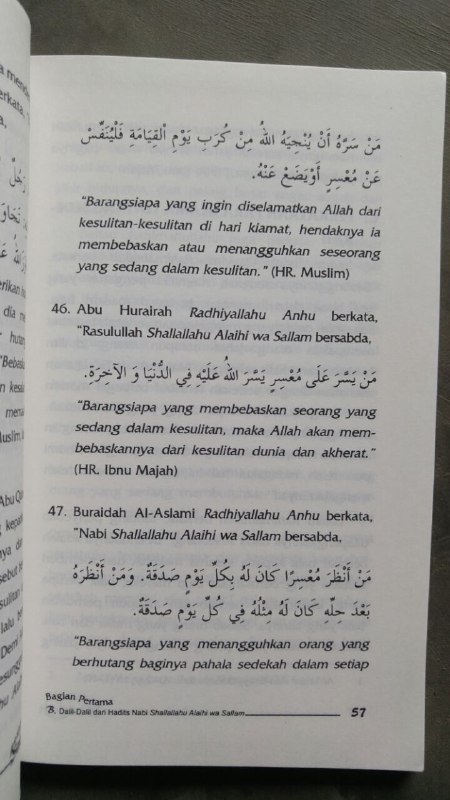 a mend
erkata,
a,
مَنْ سَرَّهُ أَنْ يُنْجِيَهُ اللهُ مِنْ كُرَبِ يَوْمِ الْقِيَامَةِ فَلْيُنَفِّسْ
عَنْ مُعْسِرٍ أَوْيَضَعْ عَنْهُ.
"Barangsiapa yang ingin diselamatkan Allah dari
kesulitan-kesulitan di hari kiamat, hendaknya ia
membebaskan atau menangguhkan seseorang
yang sedang dalam kesulitan." (HR. Muslim)
46. Abu Hurairah Radhiyallahu Anhu berkata,
"Rasulullah Shallallahu Alaihi wa Sallam bersabda,
مَنْ يَسَّرَ عَلَى مُعْسِرٍ يَسَّرَ اللهُ عَلَيْهِ فِي الدُّنْيَا وَ الآخِرَةِ.
"Barangsiapa yang membebaskan seorang yang
sedang dalam kesulitan, maka Allah akan mem-
bebaskannya dari kesulitan dunia dan akherat."
(HR. Ibnu Majah)
47. Buraidah Al-Aslami Radhiyallahu Anhu berkata,
"Nabi Shallallahu Alaihi wa Sallam bersabda,
مَنْ أَنْظَرَ مُعْسِرًا كَانَ لَهُ بِكُلِّ يَوْمٍ صَدَقَةٌ. وَمَنْ أَنْظَرَهُ
بَعْدَ حِلِّهِ كَانَ لَهُ مِثْلُهُ فِي كُلِّ يَوْمٍ صَدَقَةٌ.
"Barangsiapa yang menangguhkan orang yang
berhutang baginya pahala sedekah dalam setiap
Bagian Pertama
B. Dalil-Dalil dari Hadits Nabi Shallallahu Alaihi wa Sallam 57